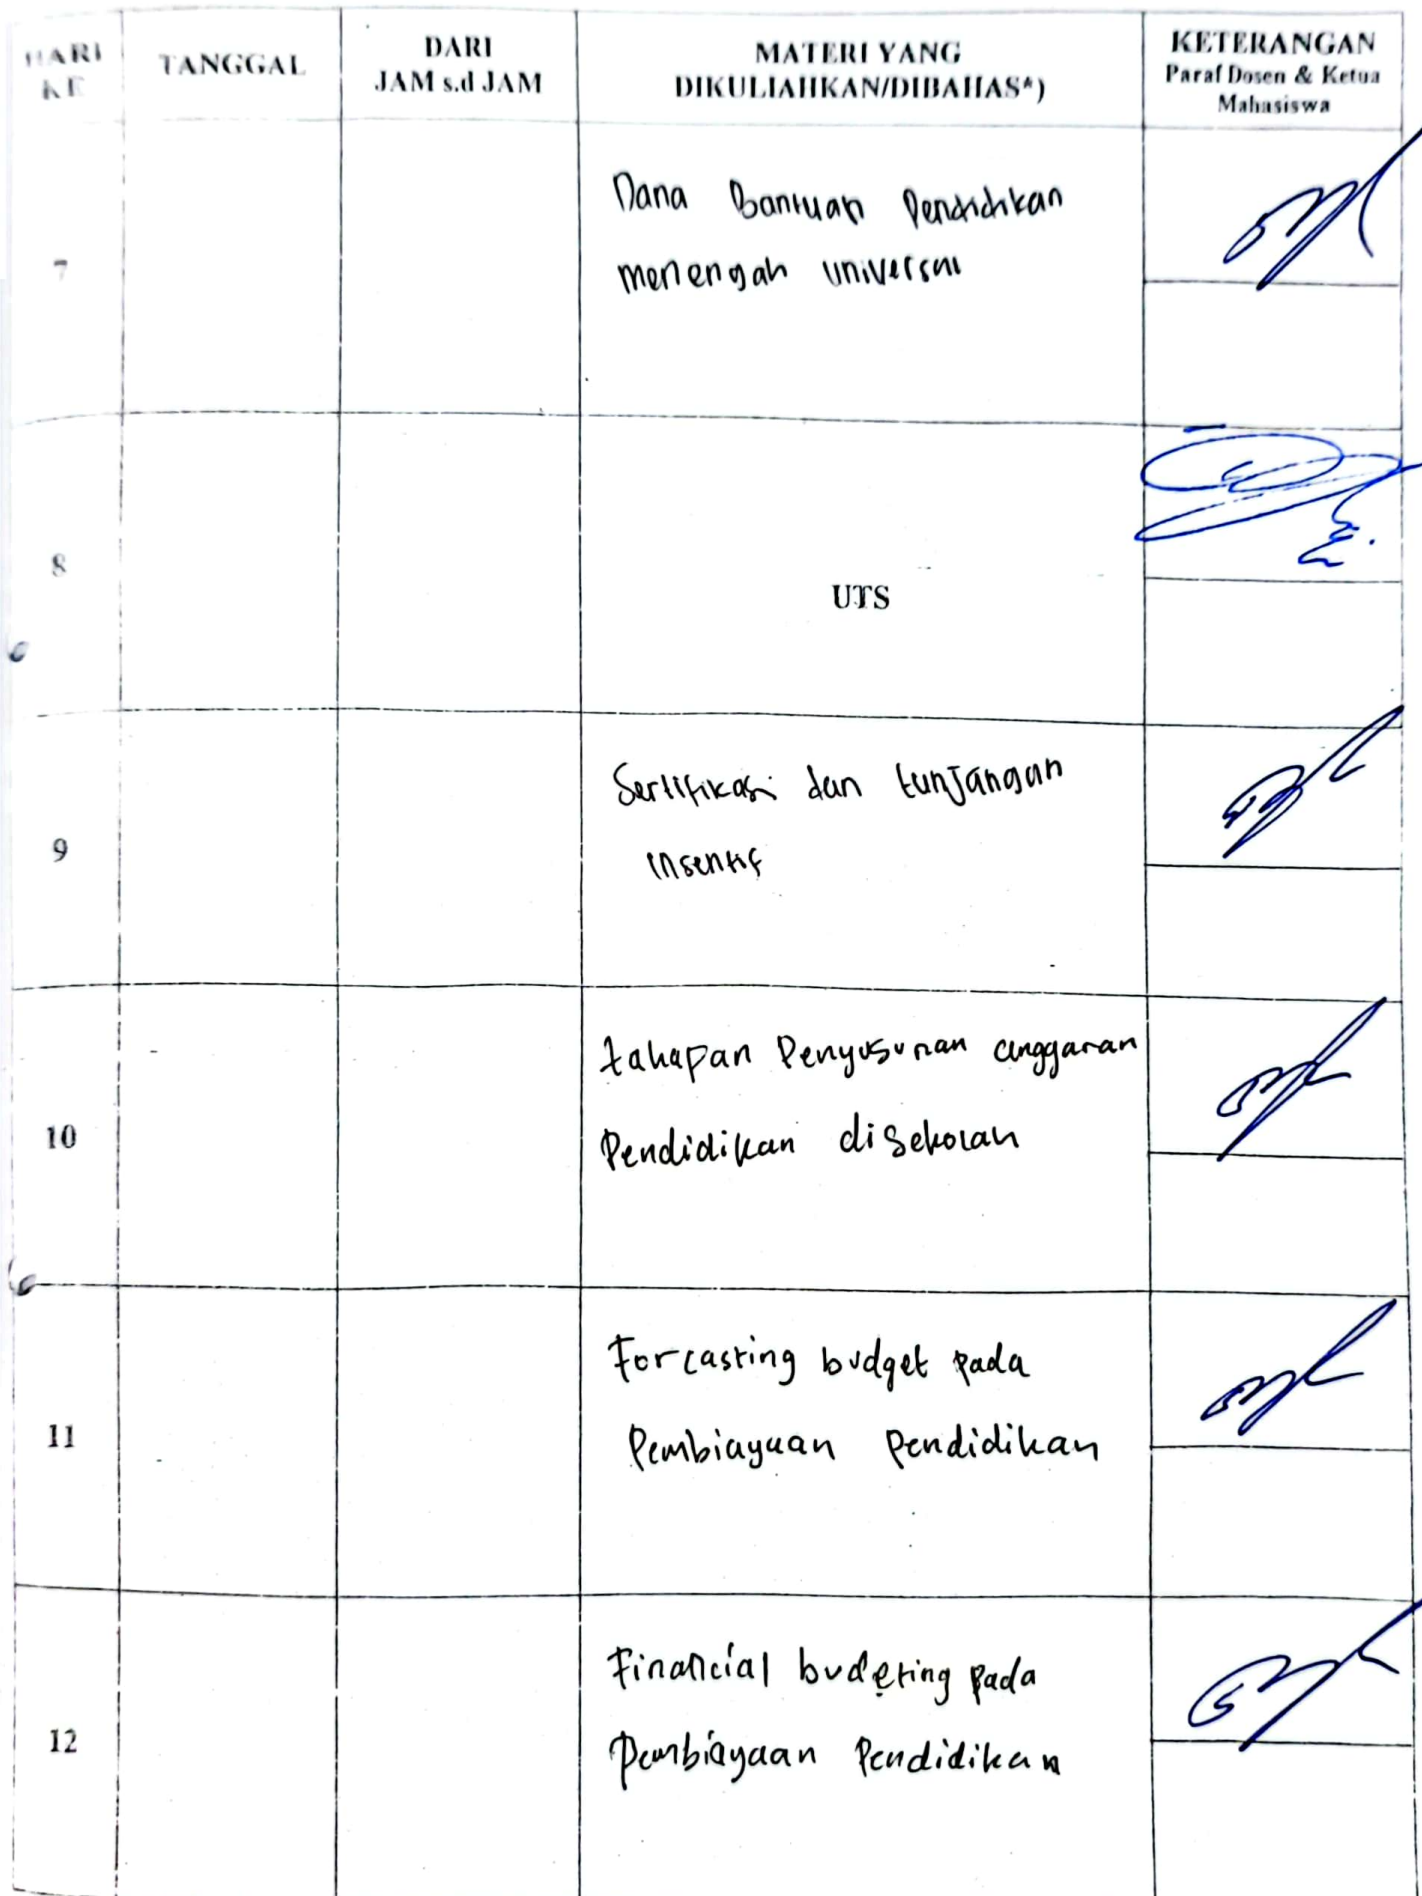 HARI
KE
TANGGAL
DARI
JAM s.d JAM
MATERI YANG
DIKULIAHKAN/DIBAHAS*)
KETERANGAN
Paraf Dosen & Ketua
Mahasiswa
7
Dana Bantuan Pendidikan
menengah universal
8
UTS
9
Sertifikasi dan tunjangan
insentif
10
tahapan Penyusunan anggaran
Pendidikan disekolah
11
Forcasting budget pada
Pembiayaan Pendidikan
12
Financial budgeting pada
Pembiayaan Pendidikan